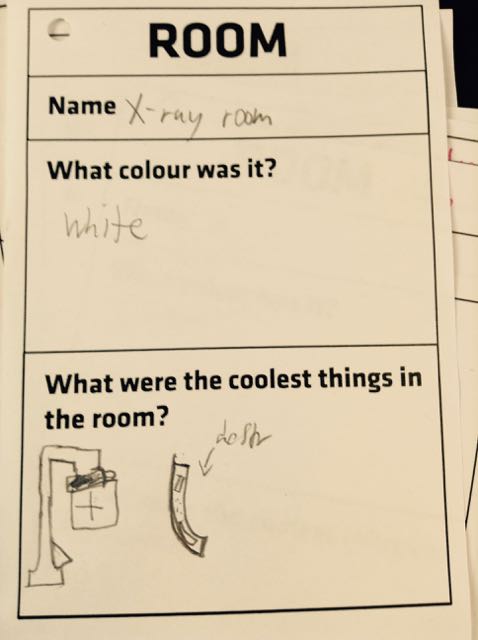 ROOM
Name X-ray room
What colour was it?
White
What were the coolest things in
the room?